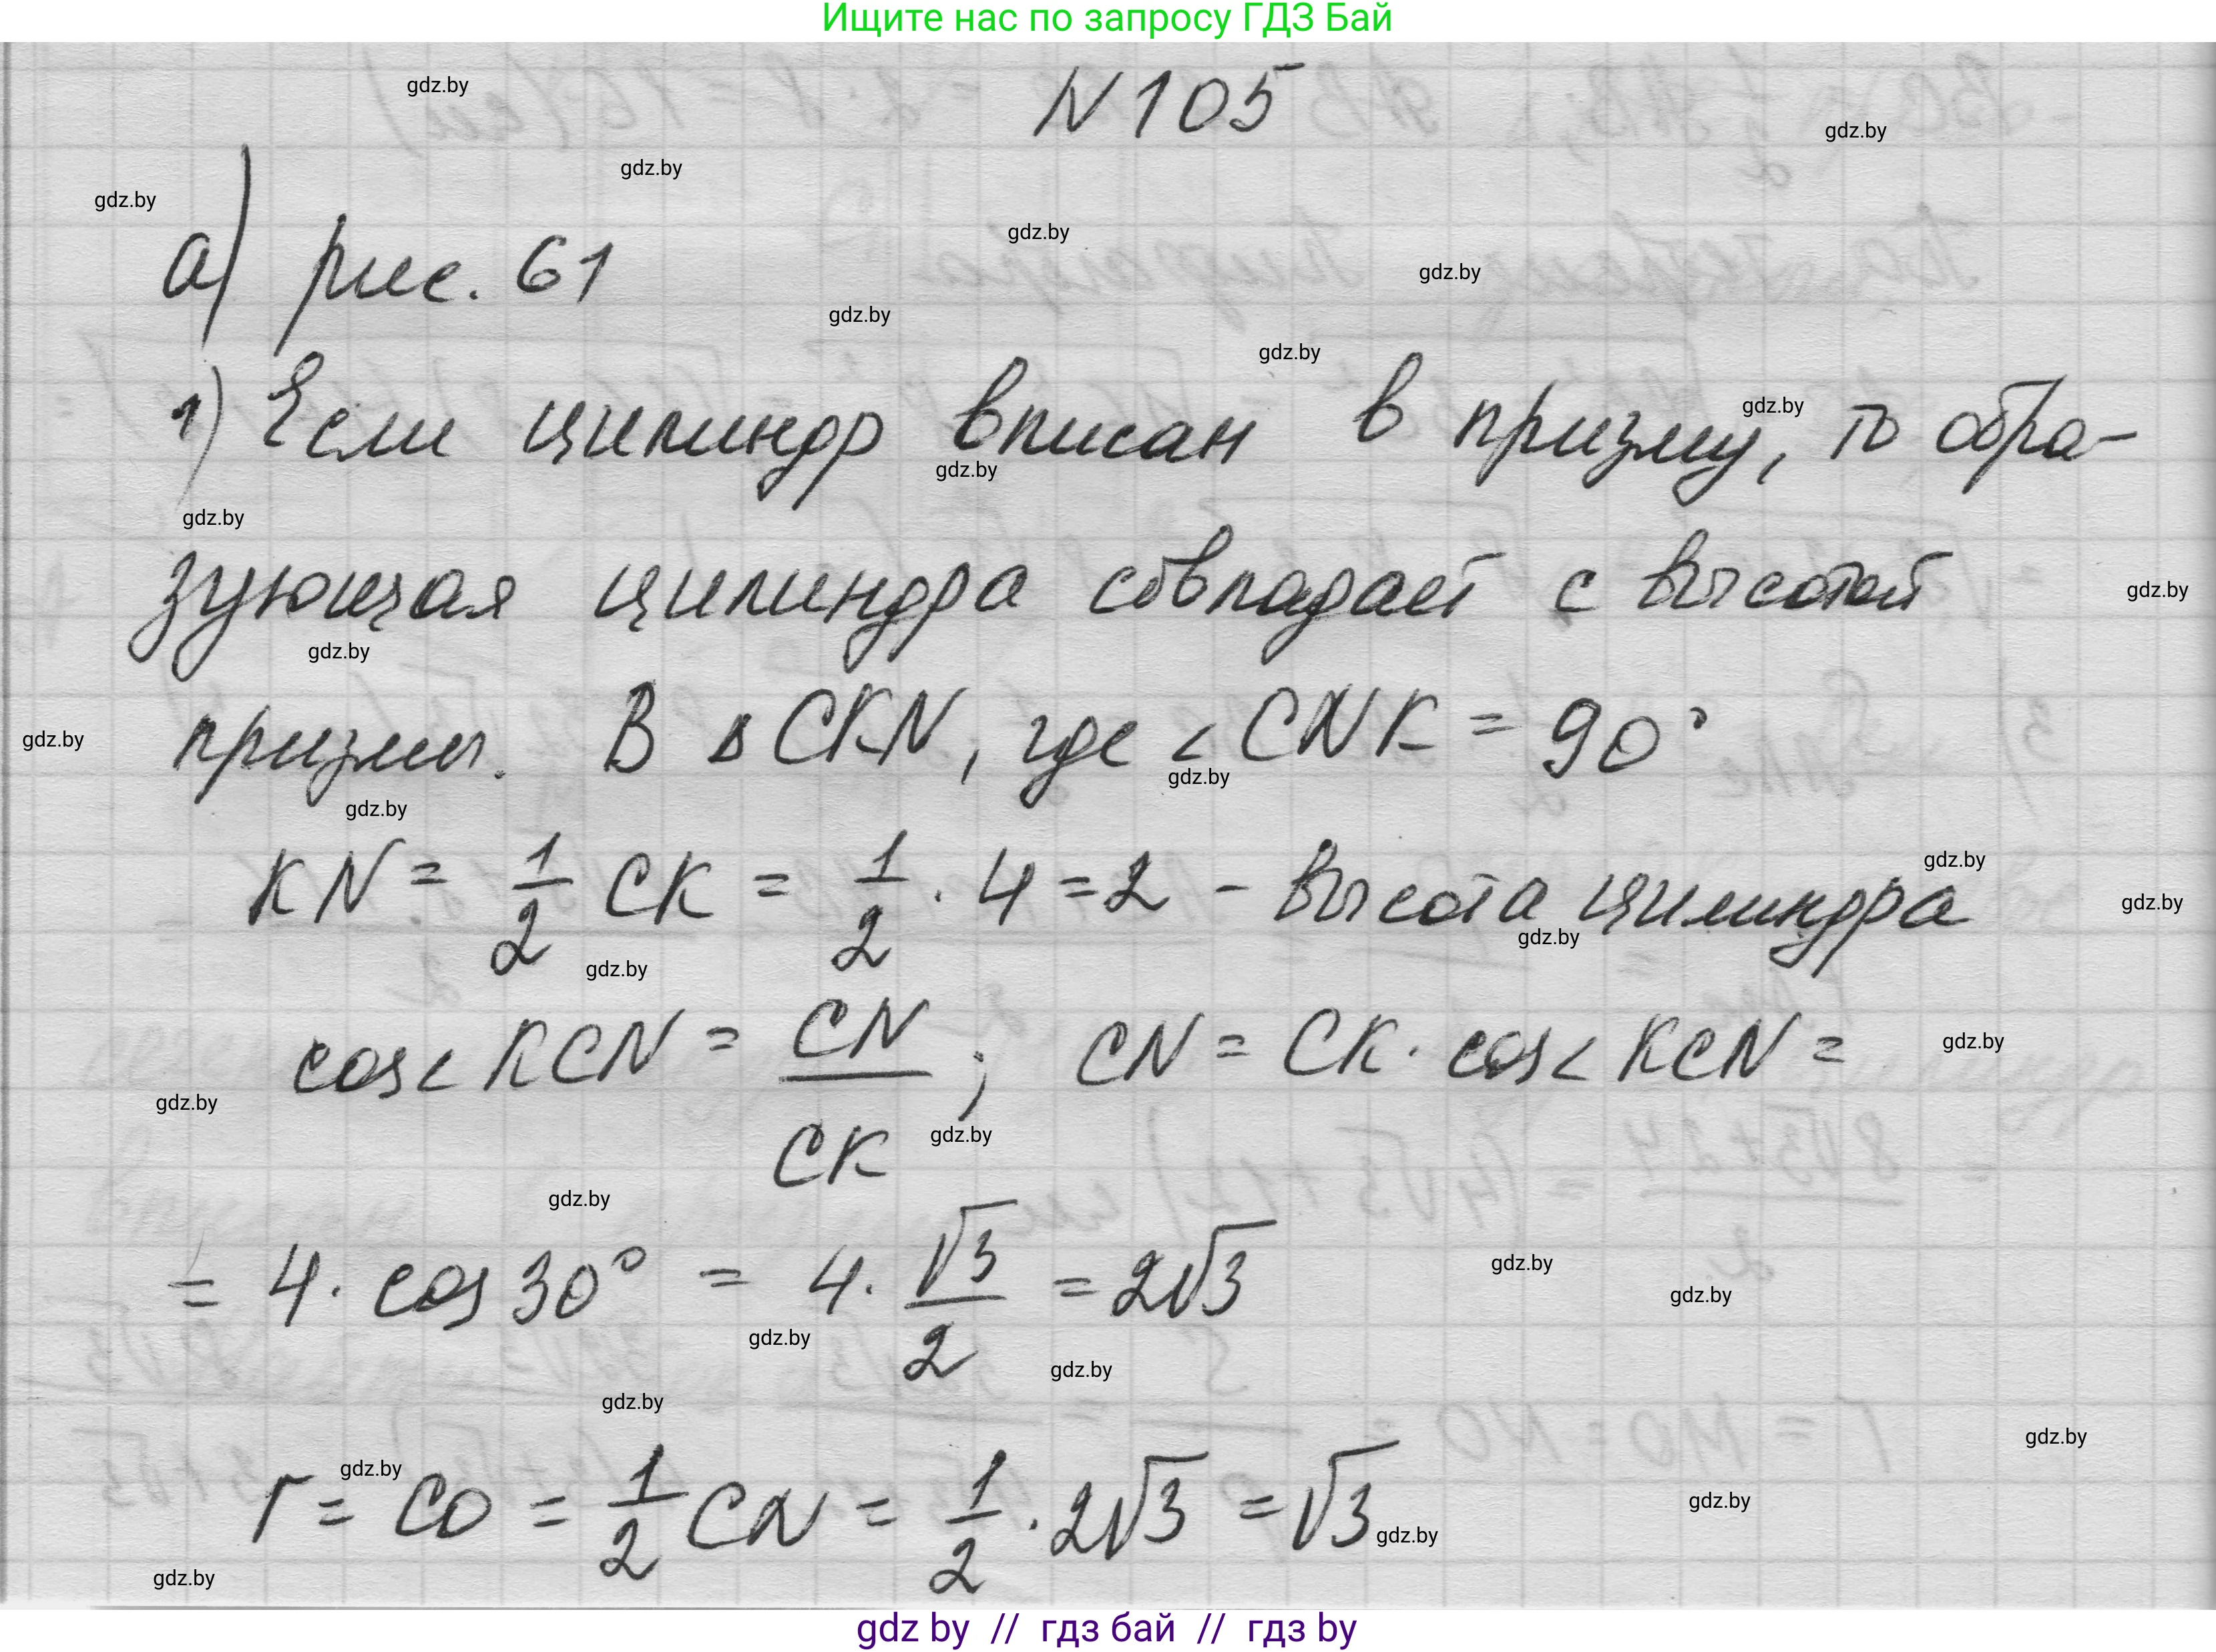 Ищите нас по запросу ГДЗ Бай
gdz.by
N 105
gdz.by
gdz.by
gdz.by
а) рис. 61
gdz.by
gdz.by
gdz.by
gdz.by
gdz.by
1) Если цилиндр вписан в призму, то обра-
gdz.by
gdz.by
зующая цилиндра совпадает с высотой
gdz.by
gdz.by
призмы. В ΔCKN, где <CNK = 90°
gdz.by
gdz.by
gdz.by
KN = 1/2 CK = 1/2 · 4 = 2 - высота цилиндра
gdz.by
gdz.by
gdz.by
gdz.by
cos< KCN = CN/CK ; CN = CK · cos< KCN =
gdz.by
gdz.by
gdz.by
gdz.by
= 4 · cos 30° = 4 · √3/2 = 2√3
gdz.by
gdz.by
gdz.by
gdz.by
gdz.by
gdz.by
gdz.by
r = CO = 1/2 CN = 1/2 · 2√3 = √3
gdz.by
gdz.by
gdz.by
gdz.by
gdz by // гдз бай // гдз by